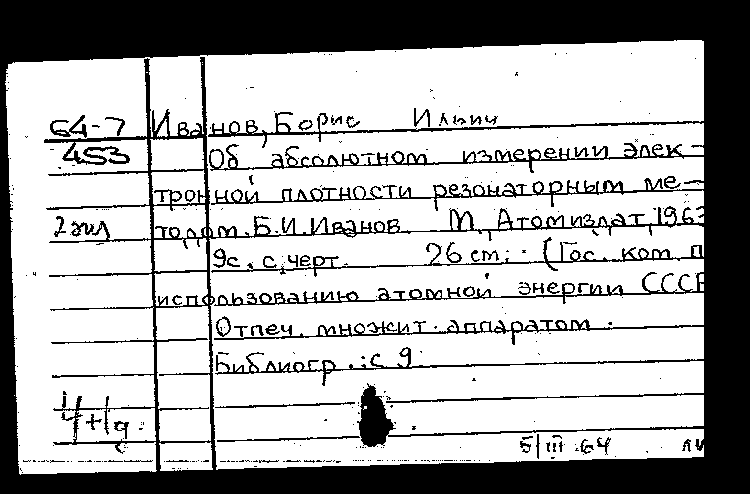 64-7 Иванов, Борис Ильич
453 Об абсолютном измерении элек-
тронной плотности резонаторным ме-
2 экз тодом. Б.И.Иванов. М., Атомиздат, 1963
9с. с черт. 26 см. (Гос. ком п
использованию атомной энергии СССР
Отпеч. множит. аппаратом.
Библиогр.: с 9
5/III.64